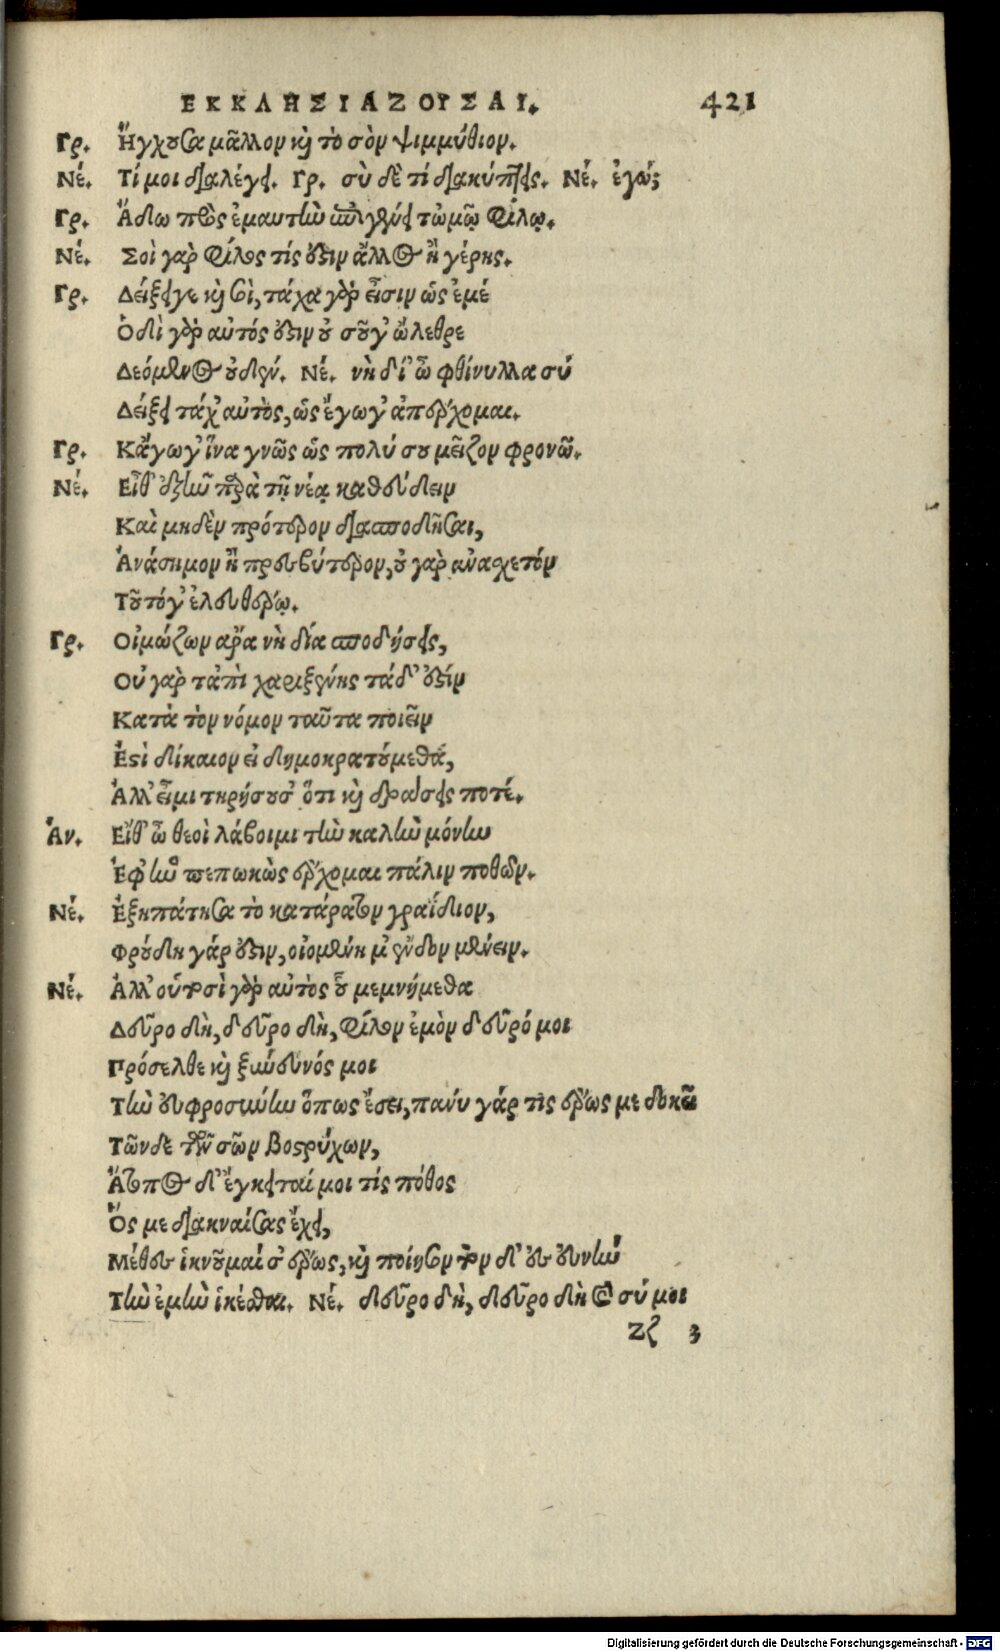 ΕΚΚΛΗΣΙΑΖΟΥΣΑΙ. 421
Γρ. Ἤγχουσα μᾶλλον καὶ τὸ σὸν ψιμμύθιον.
Νέ. Τί μοι διαλέγει. Γρ. σὺ δὲ τί διακύπτεις. Νέ. ἐγώ;
Γρ. Ἄδω πρὸς ἐμαυτὴν Ἐπιγένει τὠμῷ φίλῳ.
Νέ. Σοὶ γὰρ φίλος τίς ἐστιν ἄλλος ἢ γέρης.
Γρ. Δείξει γε καὶ σοὶ, τάχα γὰρ εἶσιν ὡς ἐμέ
Ὁδὶ γὰρ αὐτός ἐστιν οὐ σοῦ γ' ὤλεθρε
Δεόμενος οὐδέν. Νέ. νὴ δί' ὦ φθίνυλλα σύ
Δείξει τάχ' αὐτὸς, ὡς ἔγωγ' ἀπέρχομαι.
Γρ. Κἄγωγ' ἵνα γνῶς ὡς πολύ σου μεῖζον φρονῶ.
Νέ. Εἶθ' ἐξῆν παρὰ τῇ νέᾳ καθεύδειν
Καὶ μηδὲν πρότερον διασποδῆσαι,
Ἀνάσιμον ἢ πρεσβύτερον, οὐ γὰρ ἀνασχετόν
Τοῦτό γ' ἐλευθέρῳ.
Γρ. Οἰμώζων ἄρα νὴ δία σποδήσεις,
Οὐ γὰρ τἀπὶ χαριξένης τάδ' ἐστίν
Κατὰ τὸν νόμον ταῦτα ποιεῖν
Ἐστὶ δίκαιον εἰ δημοκρατούμεθα,
Ἀλλ' εἶμι τηρήσουσ' ὅτι καὶ δράσεις ποτέ.
Ἀν. Εἴθ' ὦ θεοὶ λάβοιμι τὴν καλὴν μόνην
Ἐφ' ἣν πεπωκὼς ἔρχομαι πάλιν ποθῶν.
Νέ. Ἐξηπάτησα τὸ κατάρατον γραΐδιον,
Φρούδη γάρ ἐστιν, οἰομένη μ' ἔνδον μένειν.
Νέ. Ἀλλ' οὑτοσὶ γὰρ αὐτὸς οὗ μεμνήμεθα
Δεῦρο δὴ, δεῦρο δὴ, φίλον ἐμὸν δεῦρό μοι
Πρόσελθε καὶ ξύνευνός μοι
Τὴν εὐφροσύνην ὅπως ἔσει, πάνυ γάρ τις ἔρως με δονεῖ
Τῶνδε τῶν σῶν βοστρύχων,
Ἄτοπος δ' ἔγκειταί μοι τίς πόθος
Ὅς με διακναίσας ἔχει,
Μέθες ἱκνοῦμαί σ' ἔρως, καὶ ποίησον τόνδ' ἐς εὐνήν
Τὴν ἐμὴν ἱκέσθαι. Νέ. δεῦρο δὴ, δεῦρο δὴ καὶ σύ μοι
Ζζ 3
Digitalisierung gefördert durch die Deutsche Forschungsgemeinschaft - DFG